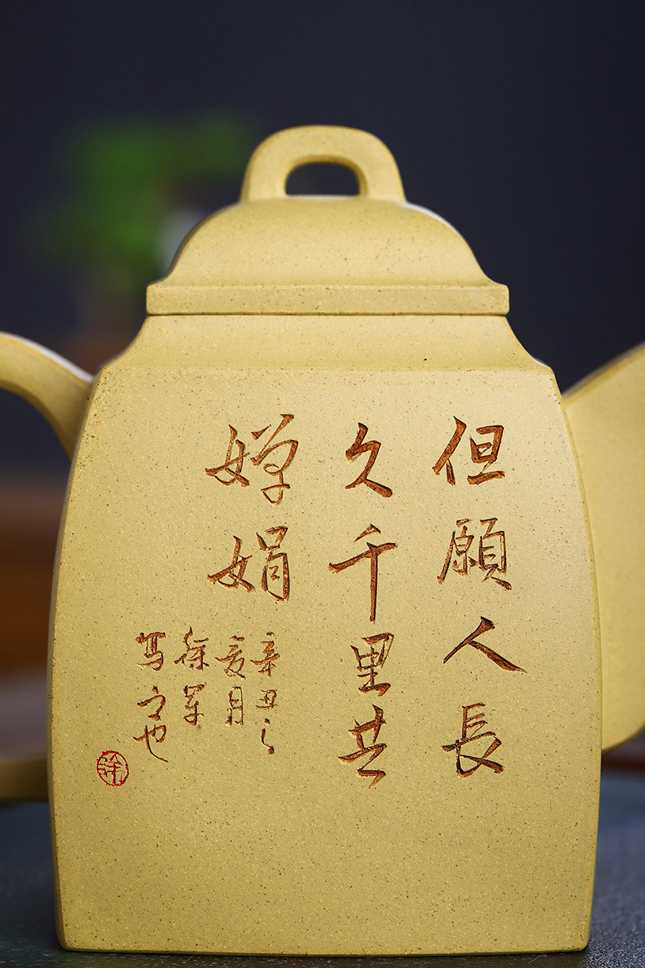 但願人長
久千里共
嬋娟
辛丑之
夏月
徐
之也
徐